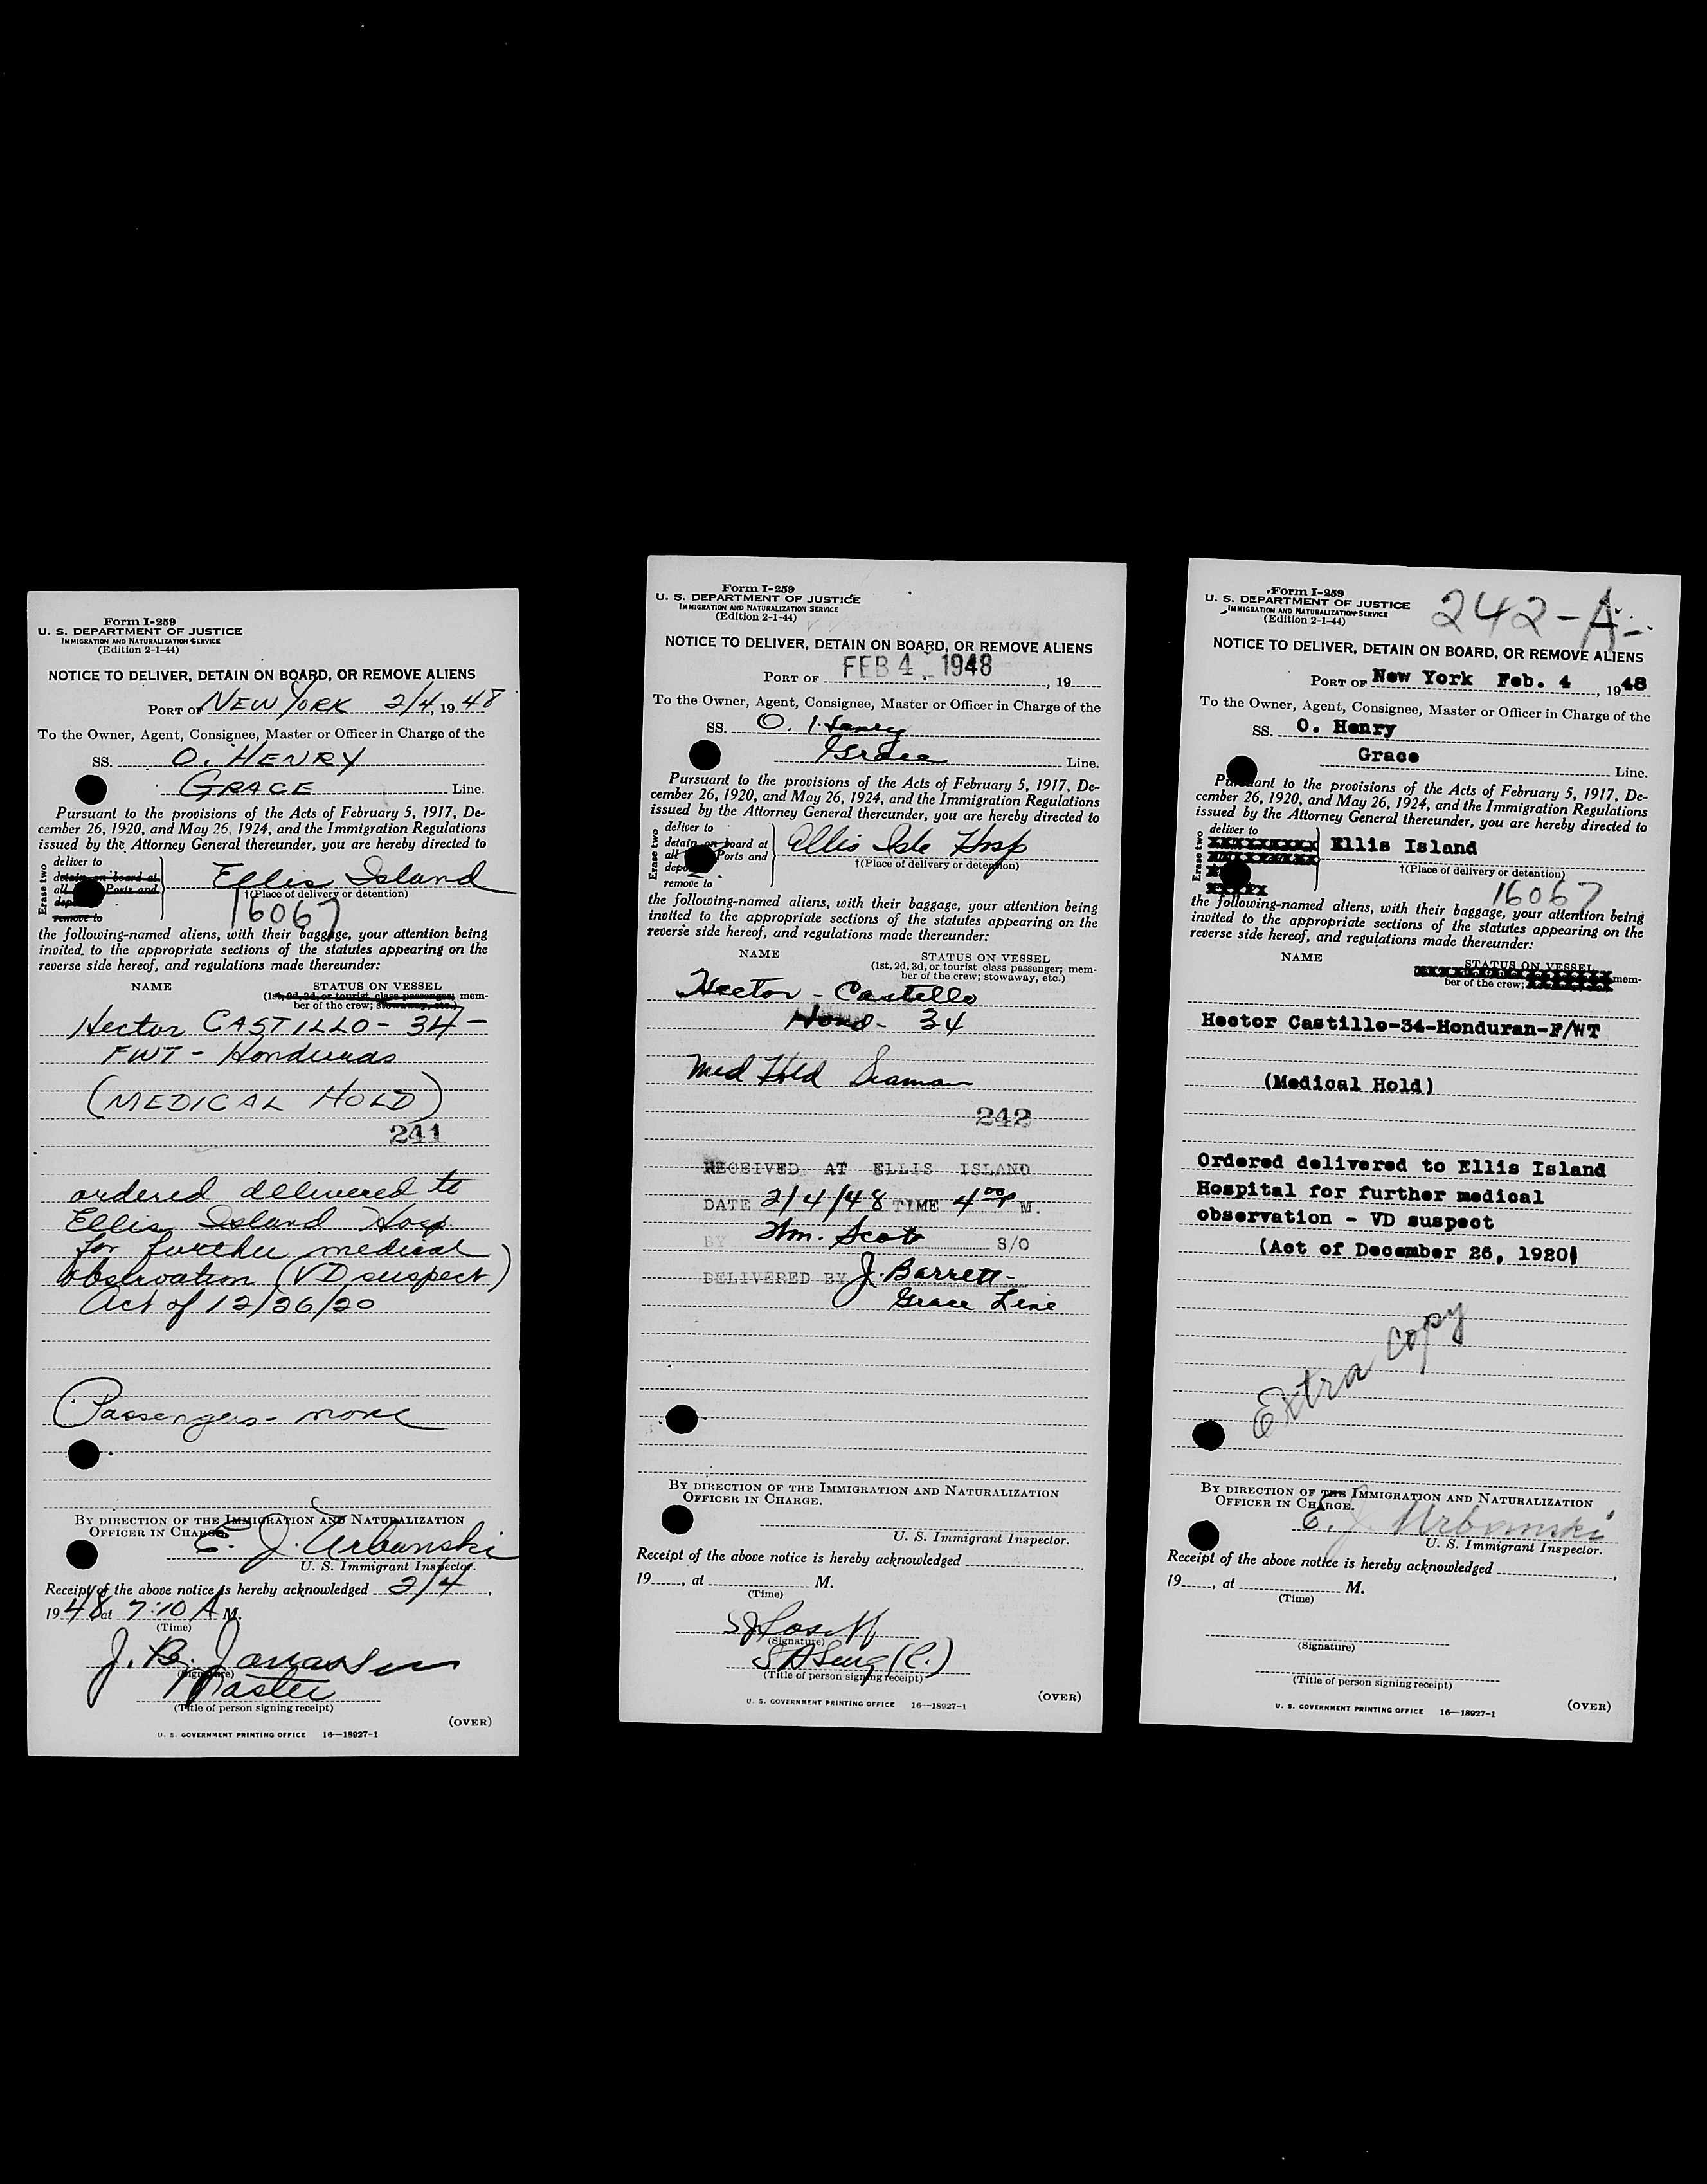 Form I-259
U. S. DEPARTMENT OF JUSTICE
IMMIGRATION AND NATURALIZATION SERVICE
(Edition 2-1-44)
NOTICE TO DELIVER, DETAIN ON BOARD, OR REMOVE ALIENS
PORT OF NEW YORK 2/4, 1948
To the Owner, Agent, Consignee, Master or Officer in Charge of the
SS. O. HENRY
GRACE Line.
Pursuant to the provisions of the Acts of February 5, 1917, De-
cember 26, 1920, and May 26, 1924, and the Immigration Regulations
issued by the Attorney General thereunder, you are hereby directed to
Erase two
deliver to
detain on board at
all Ports and
remove to
Ellis Island
†(Place of delivery or detention)
16067
the following-named aliens, with their baggage, your attention being
invited to the appropriate sections of the statutes appearing on the
reverse side hereof, and regulations made thereunder:
NAME STATUS ON VESSEL
(1st, 2d, 3d, or tourist class passenger; mem-
ber of the crew; stowaway, etc.)
Hector CASTILLO - 34 -
FWT - Honduras
(MEDICAL HOLD)
241
ordered delivered to
Ellis Island Hosp.
for further medical
observation (VD suspect)
Act of 12/26/20
Passengers - none
BY DIRECTION OF THE IMMIGRATION AND NATURALIZATION
OFFICER IN CHARGE.
E. J. Urbanski
U. S. Immigrant Inspector.
Receipt of the above notice is hereby acknowledged 2/4,
1948 at 7:10 A M.
(Time)
J. B.
(Signature)
Master
(Title of person signing receipt)
(OVER)
U. S. GOVERNMENT PRINTING OFFICE 16—18927-1
Form I-259
U. S. DEPARTMENT OF JUSTICE
IMMIGRATION AND NATURALIZATION SERVICE
(Edition 2-1-44)
NOTICE TO DELIVER, DETAIN ON BOARD, OR REMOVE ALIENS
FEB 4 1948
PORT OF , 19
To the Owner, Agent, Consignee, Master or Officer in Charge of the
SS. O. Henry
Grace Line.
Pursuant to the provisions of the Acts of February 5, 1917, De-
cember 26, 1920, and May 26, 1924, and the Immigration Regulations
issued by the Attorney General thereunder, you are hereby directed to
Erase two
deliver to
detain on board at
all Ports and
remove to
Ellis Isle Hosp
†(Place of delivery or detention)
the following-named aliens, with their baggage, your attention being
invited to the appropriate sections of the statutes appearing on the
reverse side hereof, and regulations made thereunder:
NAME STATUS ON VESSEL
(1st, 2d, 3d, or tourist class passenger; mem-
ber of the crew; stowaway, etc.)
Hector - Castello
Hond - 34
Med Hold Seaman
242
RECEIVED AT ELLIS ISLAND
DATE 2/4/48 TIME 4 00 P M.
BY Wm. Scott S/O
DELIVERED BY J. Barrett -
Grace Line
BY DIRECTION OF THE IMMIGRATION AND NATURALIZATION
OFFICER IN CHARGE.
U. S. Immigrant Inspector.
Receipt of the above notice is hereby acknowledged
19, at M.
(Time)
(Signature)
(Title of person signing receipt)
(OVER)
U. S. GOVERNMENT PRINTING OFFICE 16—18927-1
242-A-
Form I-259
U. S. DEPARTMENT OF JUSTICE
IMMIGRATION AND NATURALIZATION SERVICE
(Edition 2-1-44)
NOTICE TO DELIVER, DETAIN ON BOARD, OR REMOVE ALIENS
PORT OF New York Feb. 4, 1948
To the Owner, Agent, Consignee, Master or Officer in Charge of the
SS. O. Henry
Grace Line.
Pursuant to the provisions of the Acts of February 5, 1917, De-
cember 26, 1920, and May 26, 1924, and the Immigration Regulations
issued by the Attorney General thereunder, you are hereby directed to
Erase two
deliver to
Ellis Island
†(Place of delivery or detention)
16067
the following-named aliens, with their baggage, your attention being
invited to the appropriate sections of the statutes appearing on the
reverse side hereof, and regulations made thereunder:
NAME STATUS ON VESSEL
mem-
ber of the crew;
Hector Castillo-34-Honduran-F/WT
(Medical Hold)
Ordered delivered to Ellis Island
Hospital for further medical
observation - VD suspect
(Act of December 26, 1920)
Extra copy
BY DIRECTION OF THE IMMIGRATION AND NATURALIZATION
OFFICER IN CHARGE.
E. J. Urbanski
U. S. Immigrant Inspector.
Receipt of the above notice is hereby acknowledged ,
19, at M.
(Time)
(Signature)
(Title of person signing receipt)
(OVER)
U. S. GOVERNMENT PRINTING OFFICE 16—18927-1